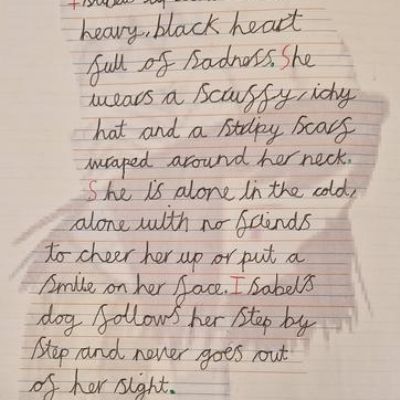 heavy, black heart
full of Sadness. She
wears a Scruffy, ichy
hat and a Stripy Scarf
wraped around her neck.
She is alone in the cold,
alone with no friends
to cheer her up or put a
Smile on her face. Isabel's
dog follows her Step by
Step and never goes out
of her sight.